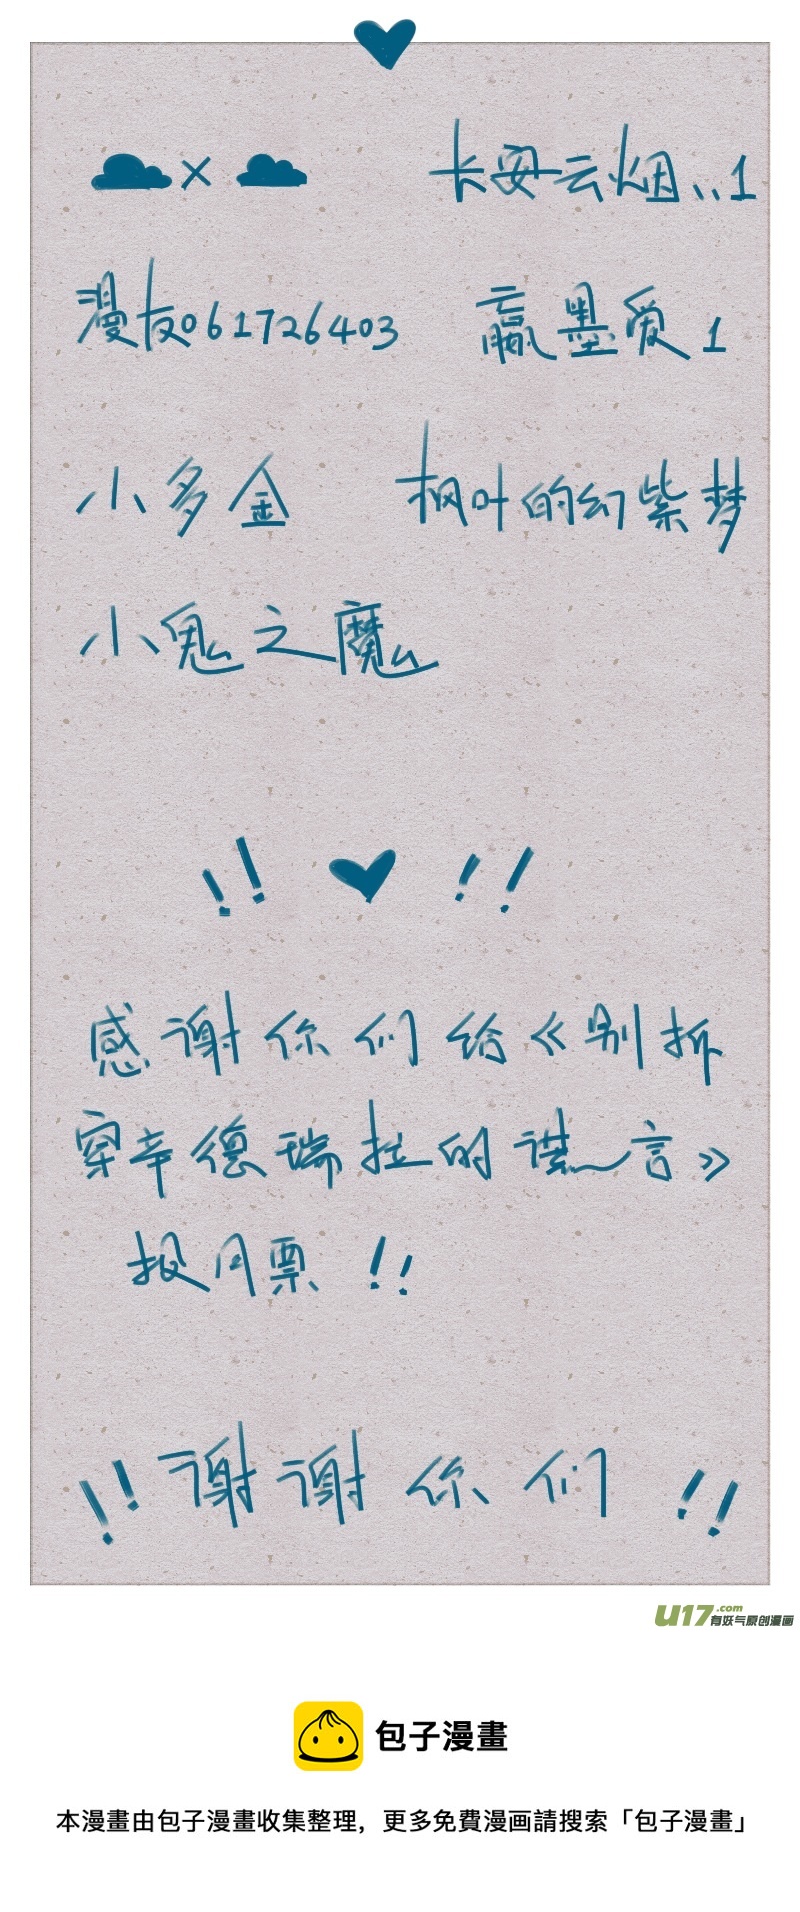 ☁×☁ 长安云烟、、1
漫友061726403 赢墨爱1
小多金 枫叶的幻紫梦
小鬼之魔
!! ♥ !!
感谢你们给《别拆
穿辛德瑞拉的谎言》
投月票!!
!!谢谢你们!!
U17.com
有妖气原创漫画
包子漫畫
本漫畫由包子漫畫收集整理，更多免費漫画請搜索「包子漫畫」